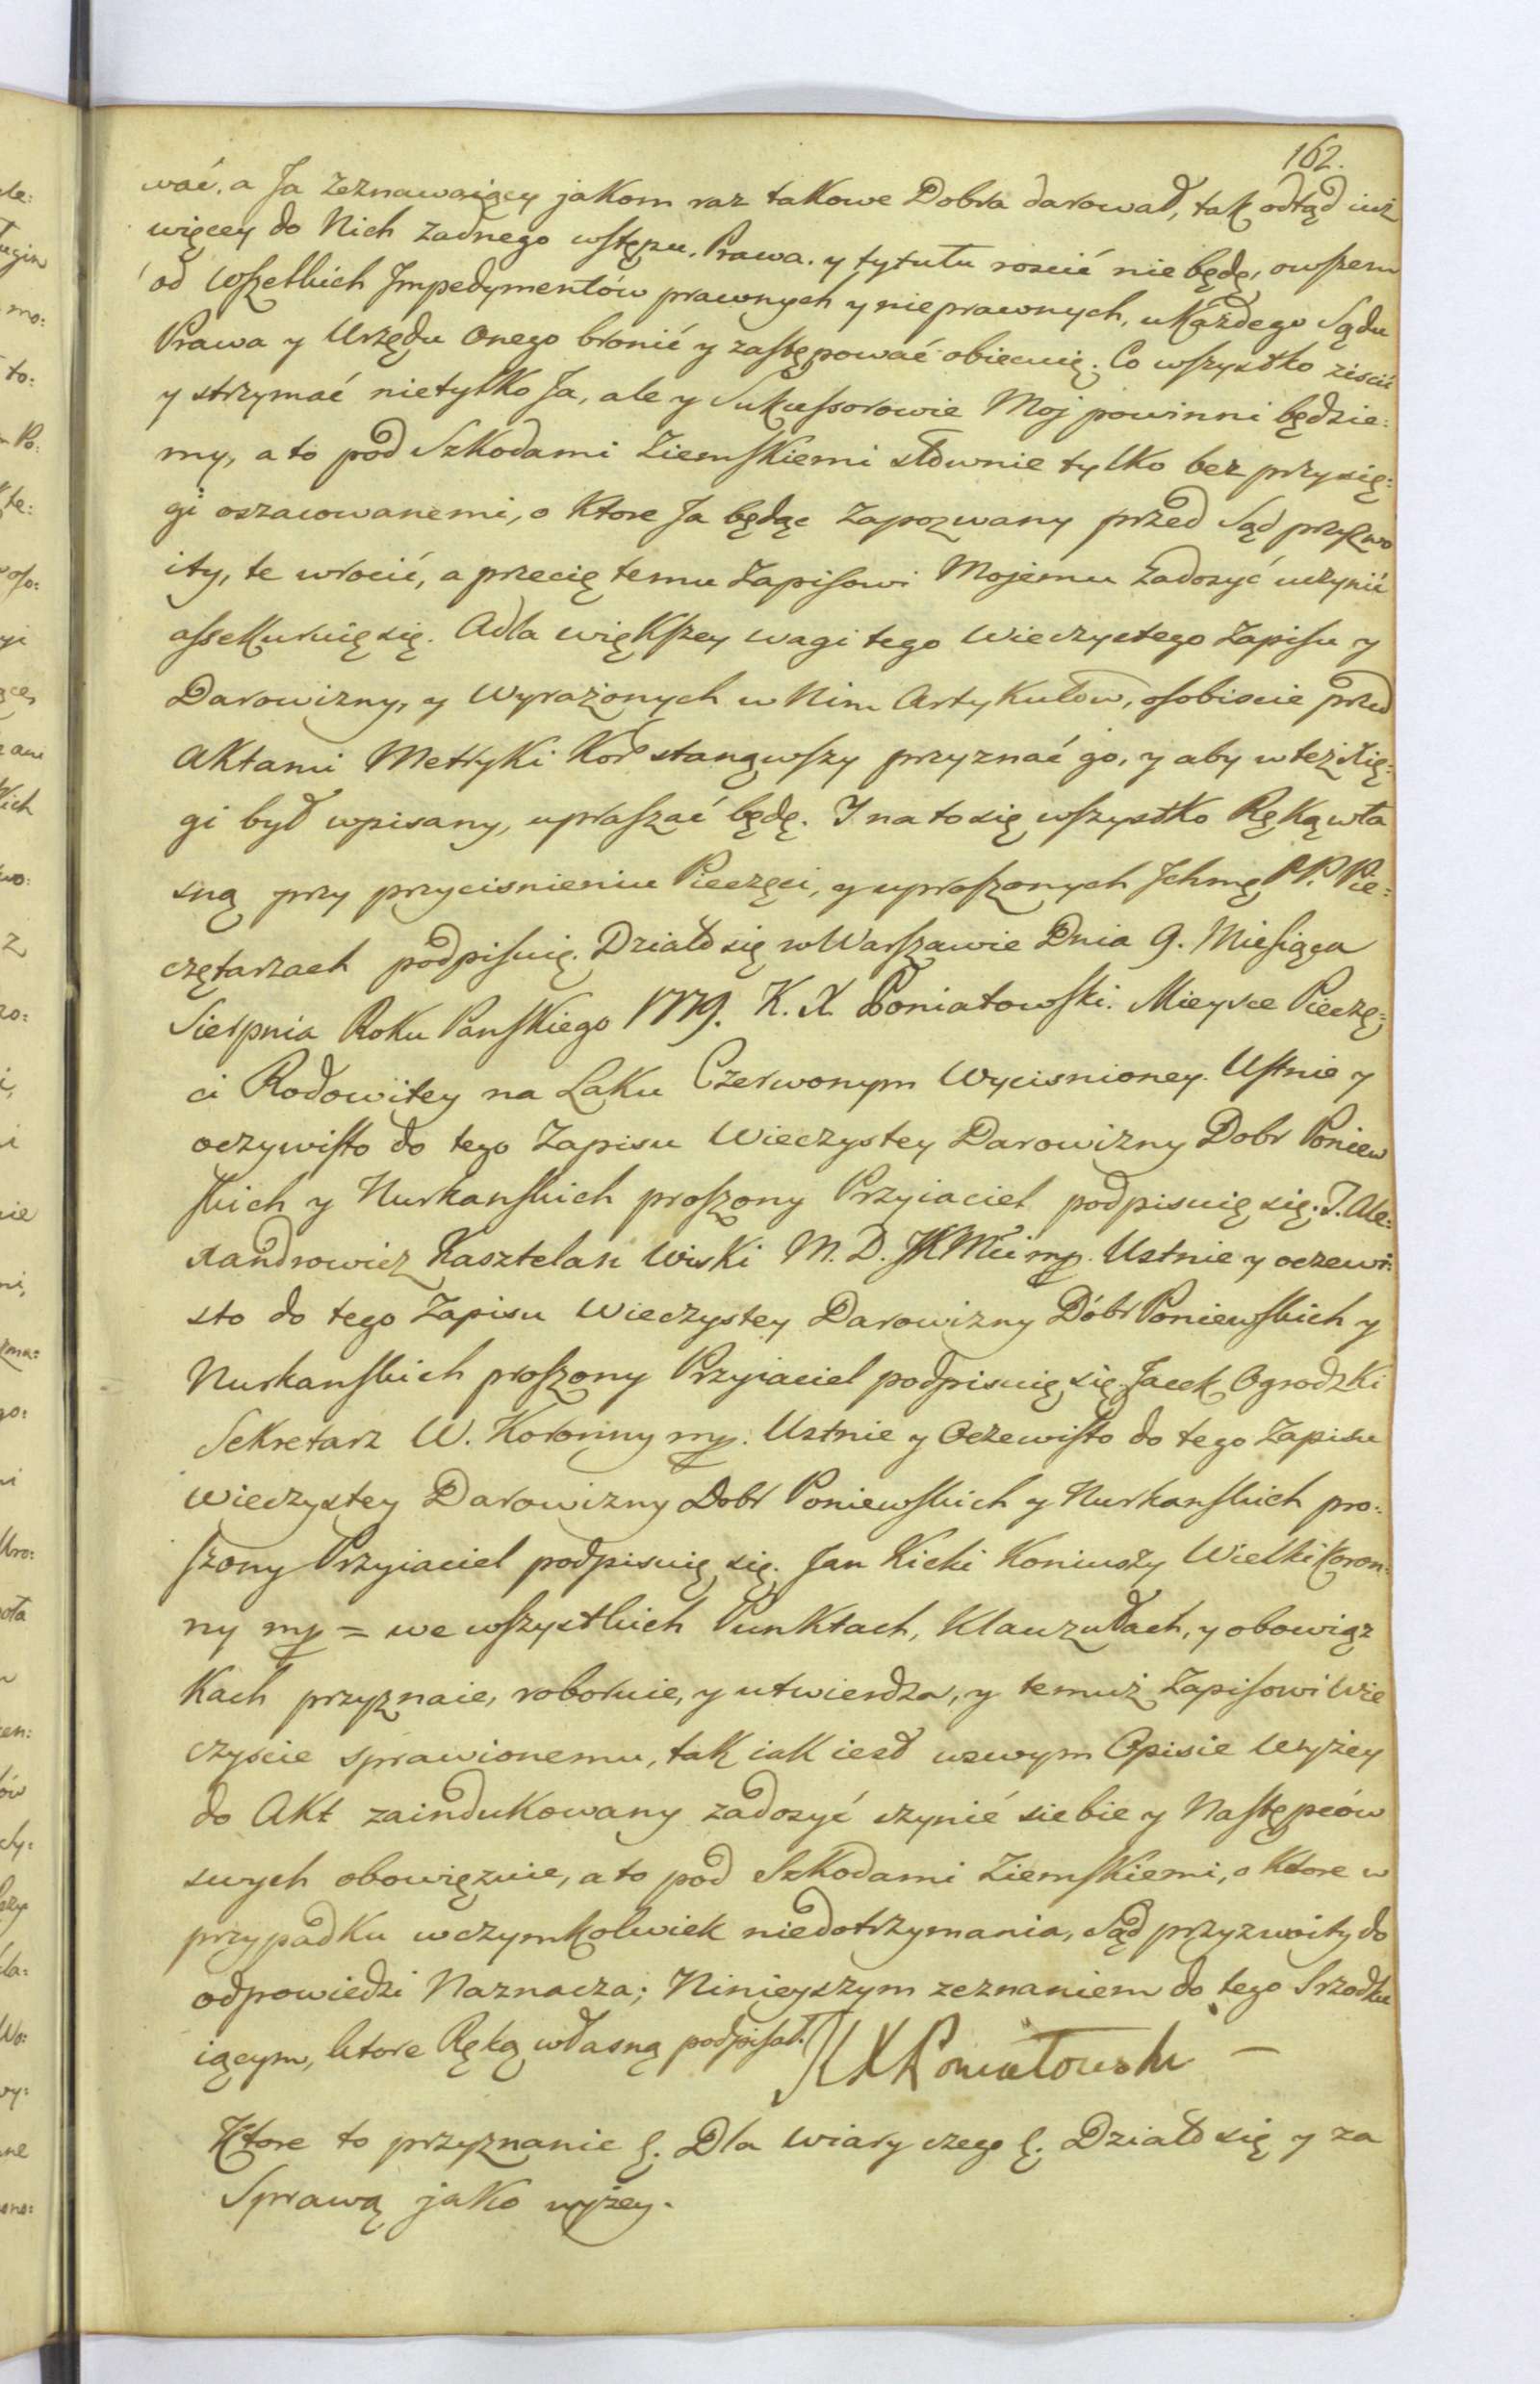 162.
wać, a Ja zeznawaiący jakom raz takowe Dobra darował, tak odtąd iuż
więcey do Nich żadnego wstępu, Prawa, y tytułu roscić nie będę, owszem
od wszelkich Impedymentów prawnych y nieprawnych, u każdego Sądu
Prawa y Urzędu onego bronić y zastępować obiecuię. Co wszystko ziscić
y strzymać nietylko Ja, ale y Sukcessorowie Moj powinni będzie:
my, a to pod Szkodami Ziemskiemi słownie tylko bez przysię:
gi oszacowanemi, o ktore Ja będąc zapozwany przed Sąd przyzwo
ity, te wrocić, a przecię temu Zapisowi Mojemu zadosyć uczynić
assekuruię się. A dla większey wagi tego Wieczystego Zapisu y
Darowizny, y wyrażonych w Nim Artykułow, osobiscie przed
Aktami Metryki Kor stanąwszy przyznać go, y aby w też Xię:
gi był wpisany, upraszać będę. I na to się wszystko Ręką wła
sną przy przycisnieniu Pieczęci, y uproszonych Ichmę PP. Pie:
czętarzach podpisuię. Działo się w Warszawie Dnia 9. Miesiąca
Sierpnia Roku Panskiego 1779. K. X Poniatowski. Mieysce Pieczę:
ci Rodowitey na Laku Czerwonym Wycisnioney. Ustnie y
oczywisto do tego Zapisu Wieczystey Darowizny Dobr Poniew
skich y Nurkanskich proszony Przyiaciel podpisuię się. T. Ale:
xandrowicz Kasztelan Wiski M. D. JKMci mp. Ustnie y oczewi:
sto do tego Zapisu Wieczystey Darowizny Dóbr Poniewskich y
Nurkanskich proszony Przyiaciel podpisuię się. Jacek Ogrodzki
Sekretarz W. Koronny mp. Ustnie y Oczewisto do tego Zapisu
Wieczystey Darowizny Dobr Poniewskich y Nurkanskich pro:
szony Przyiaciel podpisuię się. Jan Kicki Koniuszy Wielki Koron:
ny mp = we wszystkich Punktach, Klauzułach, y obowiąz
kach przyznaie, roboruie, y utwierdza, y temuż Zapisowi Wie
czyscie sprawionemu, tak iak iest w swym Opisie wyżey
do Akt zaindukowany zadosyć czynić siebie y Następców
swych obowięzuie, a to pod Szkodami Ziemskiemi, o ktore w
przypadku w czymkolwiek niedotrzymania, Sąd przyzwoity do
odpowiedzi Naznacza; Ninieyszym zeznaniem do tego Srzodku
iącym, ktore Ręką własną podpisał. K X Poniatowski —
Ktore to przyznanie &. Dla wiary czego &. Działo się y za
Sprawą jako wyżey.